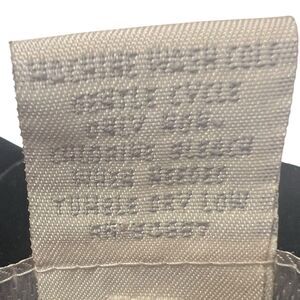 MACHINE WASH COLD
GENTLE CYCLE
ONLY NON-
CHLORINE BLEACH
WHEN NEEDED
TUMBLE DRY LOW